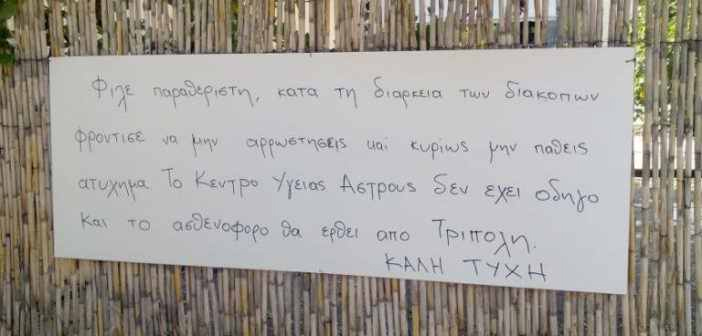 Φιλε παραθεριστη, κατα τη διαρκεια των διακοπων
φροντισε να μην αρρωστησεις και κυρίως μην παθεις
ατυχημα Το Κεντρο Υγειας Αστρους δεν εχει οδηγο
και το ασθενοφορο θα ερθει απο Τριπολη.
ΚΑΛΗ ΤΥΧΗ